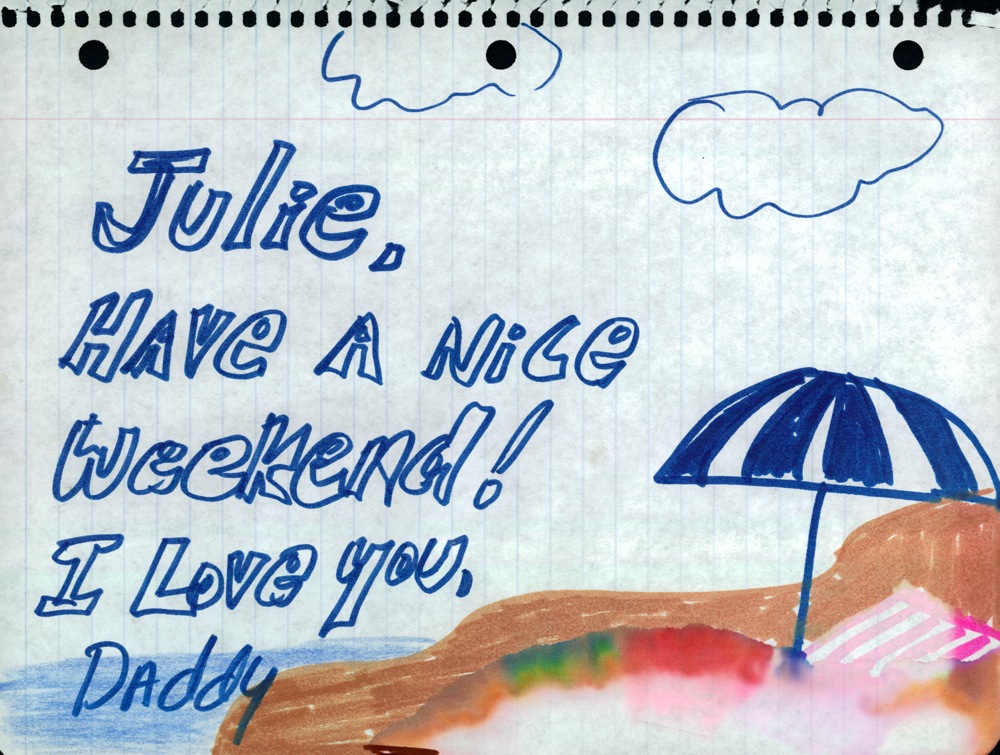 Julie,
Have A Nice
Weekend!
I Love you,
Daddy